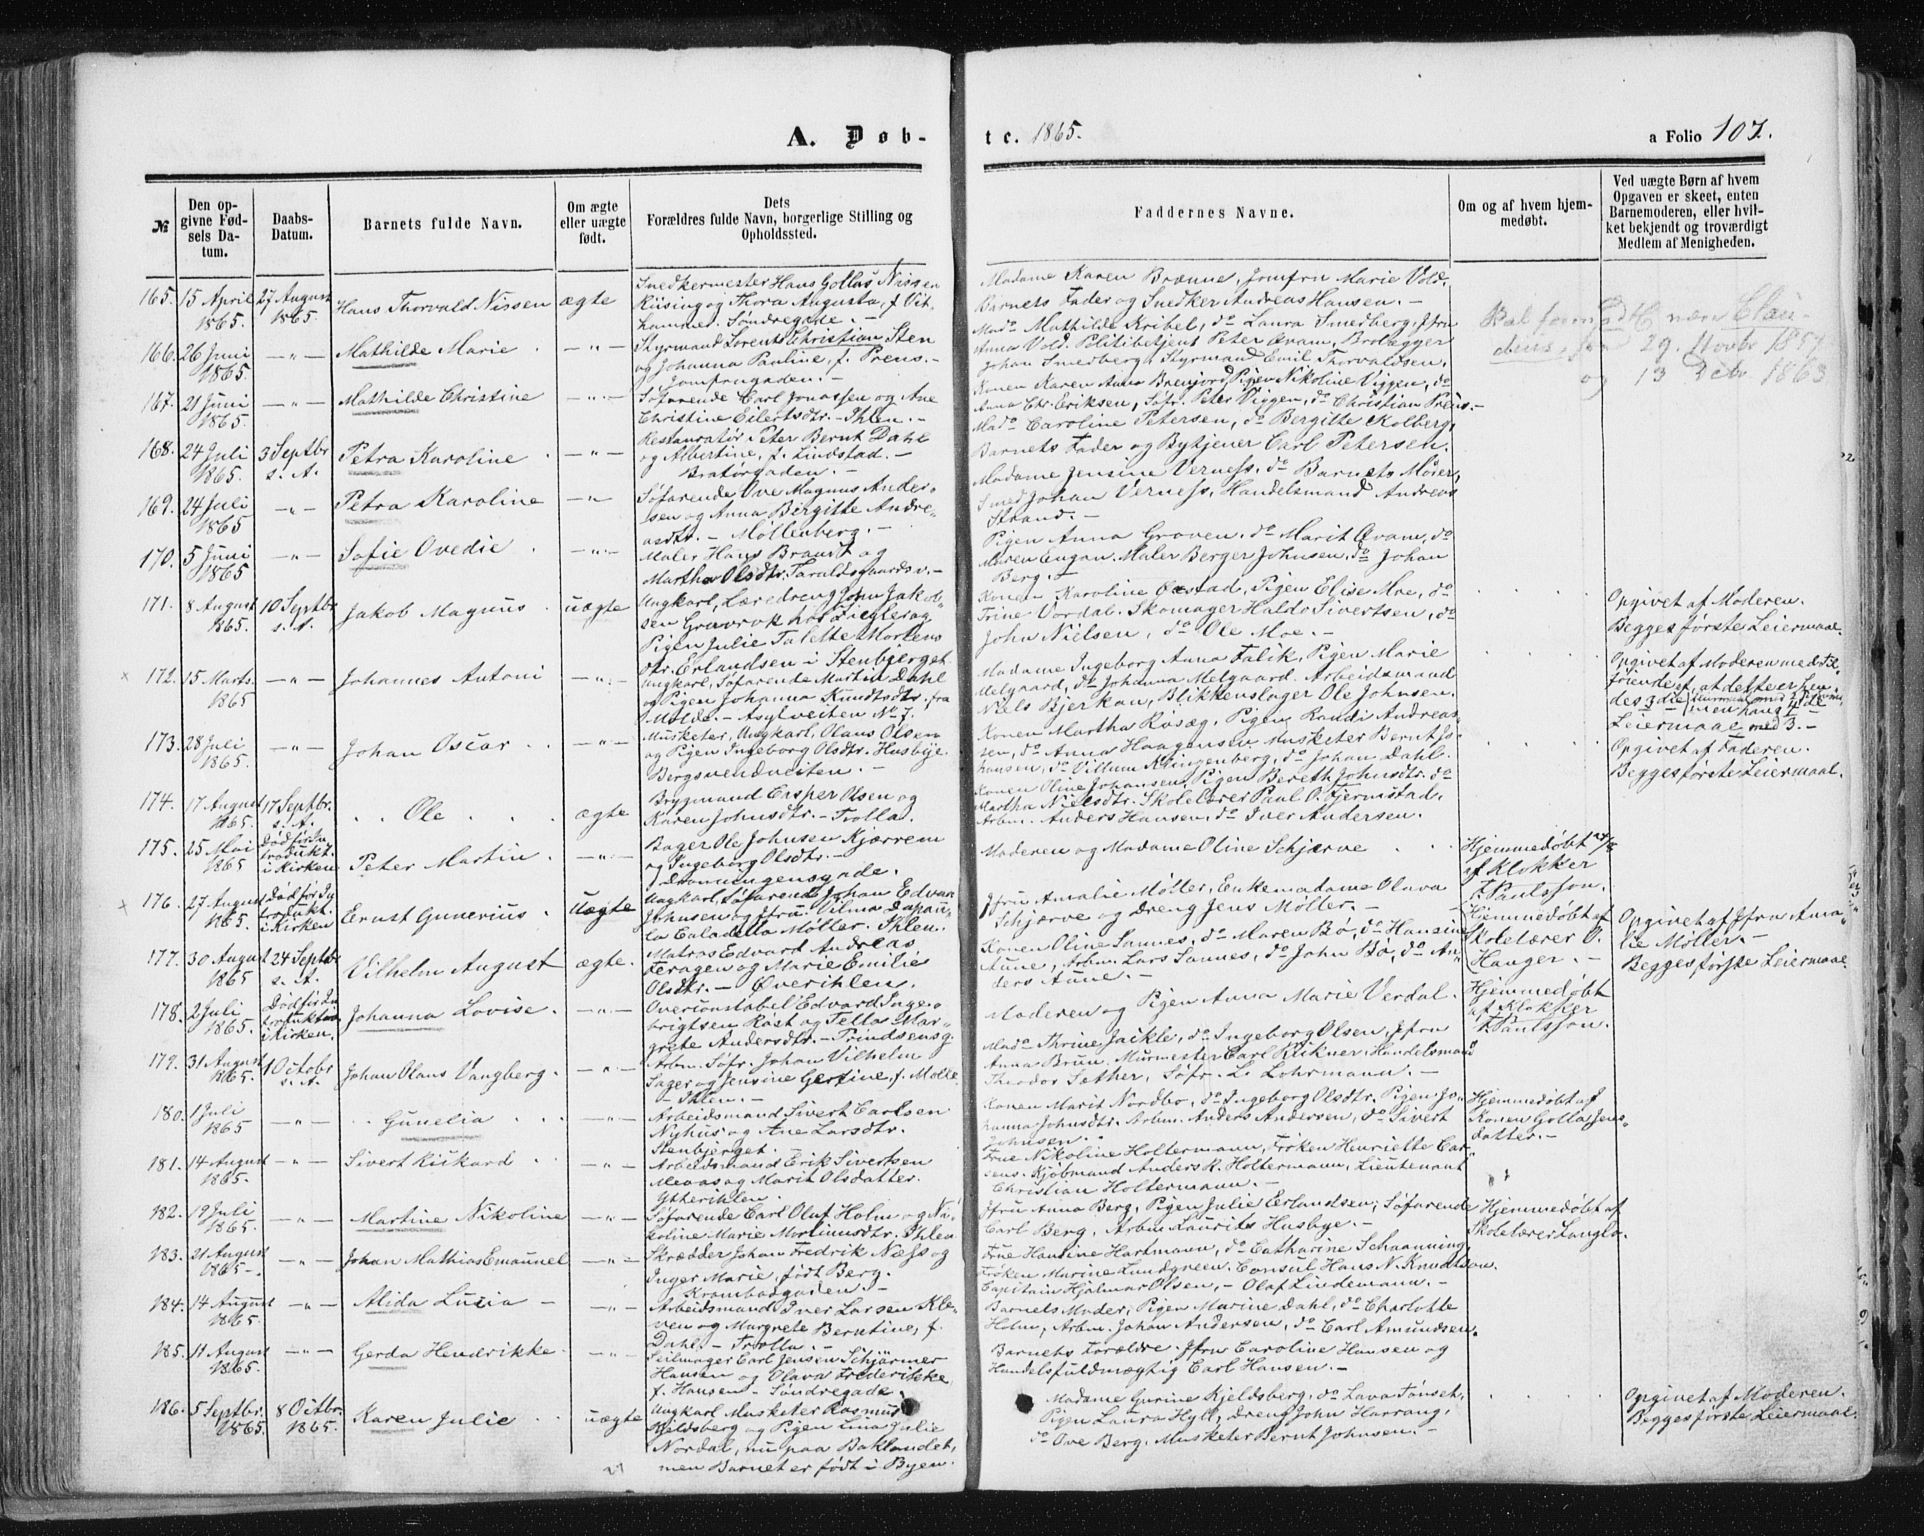 A. Døb-
te. 1865.
a Folio 107.
№
Den opgivne Fødsels Datum.
Daabs-Datum.
Barnets fulde Navn.
Om ægte eller uægte født.
Dets Forældres fulde Navn, borgerlige Stilling og Opholdssted.
Faddernes Navne.
Om og af hvem hjemmedøbt.
Ved uægte Børn af hvem Opgaven er skeet, enten Barnemoderen, eller hvilket bekjendt og troværdigt Medlem af Menigheden.
165. 15 April 1865. 27 August 1865 Hans Thorvald Nissen ægte
Snedkermester Hans Gollas Nissen
Riising og Thora Augusta, f. Vit-
hammer. Søndregade. -
Madame Karen Brænne, Jomfru Marie Vold,
Barnets Fader og Snedker Andreas Hansen. -
166. 26 Juni 1865. -"- Mathilde Marie -"-
Styrmand Lorents Christian Sten
og Johanna Pauline, f. Preus. -
Jomfrugaden. -
Mad. Mathilde Kribel, do Laura Smedberg, Jfru
Anna Vold, Politibetjent Peter Qvam, Brolægger
Johan Smedberg, Styrmand Emil Thorvaldsen.
29. Novbr 1857
og 13 Decb 1863
167. 21 Juni 1865. -"- Mathilde Christine -"-
Søfarende Carl Jonassen og Ane
Christine Eilertsdtr. - Ihlen. -
Konen Karen Anna Brenjord, Pigen Nikoline Viggen, do
Anna Chr. Eriksen, Søfr. Peter Viggen, do Christian Preus. -
168. 24 Juli 1865. 3 Septbr s. A. Petra Karoline -"-
Restauratør Peter Bernt Dahl
og Albertine, f. Lindstad. -
Bratørgaden. -
Mado Caroline Petersen, do Bergitte Kolberg,
Barnets Fader og Bytjener Carl Petersen.
169. 24 Juli 1865 -"- Petra Karoline -"-
Søfarende Ove Magnus Ander-
sen og Anna Birgitte Andre-
asdtr. - Møllenberg. -
Madame Jensine Verness, do Barnets Moder,
Smed Johan Verness, Handelsmand Andreas
Strand. -
170. 5 Juni 1865 -"- Sofie Ovedie -"-
Maler Hans Brandt og
Martha Olsdtr. Taraldsgaardsv. -
Pigen Anna Graven, do Marit Qvam, do
Maren Engan. Maler Berger Johnsen, do Johan
Berg. -
171. 8 August 1865. 10 Septbr s. A. Jakob Magnus uægte
Ungkarl, Læredreng John Jakob-
sen Gravrok hos Ziegler og
Pigen Julie Talette Mortens
Dtr. Erlandsen i Stenbjerget.
Konen Karoline Økstad, Pigen Elise Moe, do
Trine Vordal. Skomager Haldo Sivertsen, do
John Nielsen, do Ole Moe. -
Opgivet af Moderen.
Begges første Leiermaal.
172. 15 Marts 1865 -"- Johannes Antoni -"-
Ungkarl, Søfarende Martin Dahl
og Pigen Johanna Knudtsdtr. fra
Molde. - Asylveiten No 7.
Madame Ingeborg Anna Falik, Pigen Marie
Melgaard, do Johanna Melgaard. Arbeidsmand
Niels Bjerkan, Blikkenslager Ole Johnsen.
Opgivet af Moderen med Til-
føiende af, at dette er hen-
des 3die
Leiermaal med 3. -
173. 28 Juli 1865. -"- Johan Oscar -"-
Musketer, Ungkarl, Olaus Olsen
og Pigen Ingeborg Olsdtr. Husbye.
Bergsvendveiten. -
Konen Martha Rosæg, Pigen Randi Andreas-
sen, do Anna Haagensen. Musketer Bernt Jo-
hansen, do Villum Klingenberg, do Johan Dahl.
Opgivet af Faderen.
Begges første Leiermaal.
174. 17 August 1865. 17 Septbr. s. A. Ole ægte
Brygmand Casper Olsen og
Karen Johnsdtr. - Trolla.
Konen Oline Johansen, Pigen Bereth Johnsdtr. do
Martha Nielsdtr. Skolelærer Paul O. Fjermstad,
Arbm. Anders Hansen, do Iver Andersen.
175. 25 Mai 1865 Død før Introdukt. i Kirken Peter Martin -"-
Bager Ole Johnsen Kjærrem
og Ingeborg Olsdtr. -
Dronningensgade.
Moderen og Madame Oline Schjærve
Hjemmedøbt
af Klokker
F. Paulsson.
176. 27 August 1865. Død før Introdukt. i Kirken Ernst Gunerius uægte
Ungkarl, Søfarende Johan Edvard
Johnsen og Jfru. Vilma Dapau-
la Caladetta Møller. Ihlen.
Jfru Amalie Møller, Enkemadame Olava
Schjærve og Dreng Jens Møller. -
Hjemmedøbt af
Skolelærer O.
Hanger. -
Opgivet af Jfru Ama-
lie Møller. -
Begges første Leiermaal.
177. 30 August 1865 24 Septbr s. A. Vilhelm August ægte.
Matros Edvard Andreas
Feragen og Marie Emilie
Olsdtr. - Øverihlen.
Konen Oline Sannes, do Maren Bø, do Hansine
Aune, Arbm. Lars Sannes, do John Bø, do An-
ders Aune. -
178. 2 Juli 1865. Død før Introduktion i Kirken. Johanna Lovise -"-
Overconstabel Edvard Inge-
brigtsen Røst og Tella Mar-
grete Andersdtr. - Prindsensg.
Moderen og Pigen Anna Marie Verdal.
Hjemmedøbt
af Klokker
F. Paulsson.
179. 31 August 1865. 1 Octobr s. A. Johan Olaus Vangberg. -"-
Arbm. Søfr. Johan Vilhelm
Sager og Jensine Gertine, f. Molte
- Ihlen. -
Mado Thrine Jaikle, do Ingeborg Olsen, Jfru
Anna Brun, Murmester Carl Kikner, Handelsmand
Theodor Sæther, Søfr. L. Lohrmann. -
180. 1 Juli 1865 -"- Gunelia -"-
Arbeidsmand Sivert Carlsen
Nyhus og Ane Larsdtr.
Stenbjerget.
Konen Marit Nordbo, do Ingeborg Olsdtr, Pigen Jo-
hanna Johnsdtr. Arbm. Anders Andersen, do Sivert
Johnsen. -
Hjemmedøbt af
Konen Golla Jens-
datter. -
181. 14 August 1865. -"- Sivert Rikard -"-
Arbeidsmand Erik Sivertsen
Meaas og Marit Olsdatter.
Ytterihlen.
Frue Nikoline Holtermann, Frøken Henriette Car-
sens. Kjøbmand Anders R. Holtermann, Lieutenant
Christian Holtermann. -
182. 19 Juli 1865. -"- Martine Nikoline -"-
Søfarende Carl Oluf Holm og Ni-
koline Marie Mortinusdtr. Ihlen
Jfru Anna Berg, Pigen Julie Erlandsen; Søfarende
Carl Berg, Arbm. Laurits Husbye. -
Hjemmedøbt af
Skolelærer Langlo.
183. 21 August 1865 -. -"- Johan Mathias Emaunel -"-
Skrædder Johan Fredrik Næss og
Inger Marie, født Berg.
Krambodgaden. -
Frue Hansine Hartmann, do Catharine Schaanning,
Frøken Murine Lundgreen. Consul Hans N. Knudtson.
Capitain Hjalmar Olsen, - Olaf Lindemann. -
184. 14 August 1865. -"- Alida Lucia - -"-
Arbeidsmand Iver Larsen Kle-
ven og Margrete Berntine, f.
Dahl. - Trolla. -
Barnets Moder, Pigen Marine Dahl, do Charlotte
Holm, Arbm. Johan Andersen, do Carl Amundsen.
185. 11 August 1865. -"- Gerda Hendrikke. -"-
Seilmager Carl Jensen Schjärmer
Hansen og Olava Frederikke
f. Hansen - Søndregade.
Barnets Forældre. Jfru Caroline Hansen og
Handelsfuldmægtig Carl Hansen. -
186. 5 Septbr. 1865. 8 Octbr. 1865. Karen Julie uægte
Ungkarl Musketer Rasmus
Kjeldsberg og Pigen Lina Julie
Nordal, nu paa Baklandet,
men Barnet er født i Byen.
Madame Gurine Kjeldsberg, do Lava Tønset,
Pigen Laura Hyll, Dreng John Harrang,
do Ove Berg, Musketer Bernt Johnsen. -
Opgivet af Moderen.
Begges første Leiermaal.